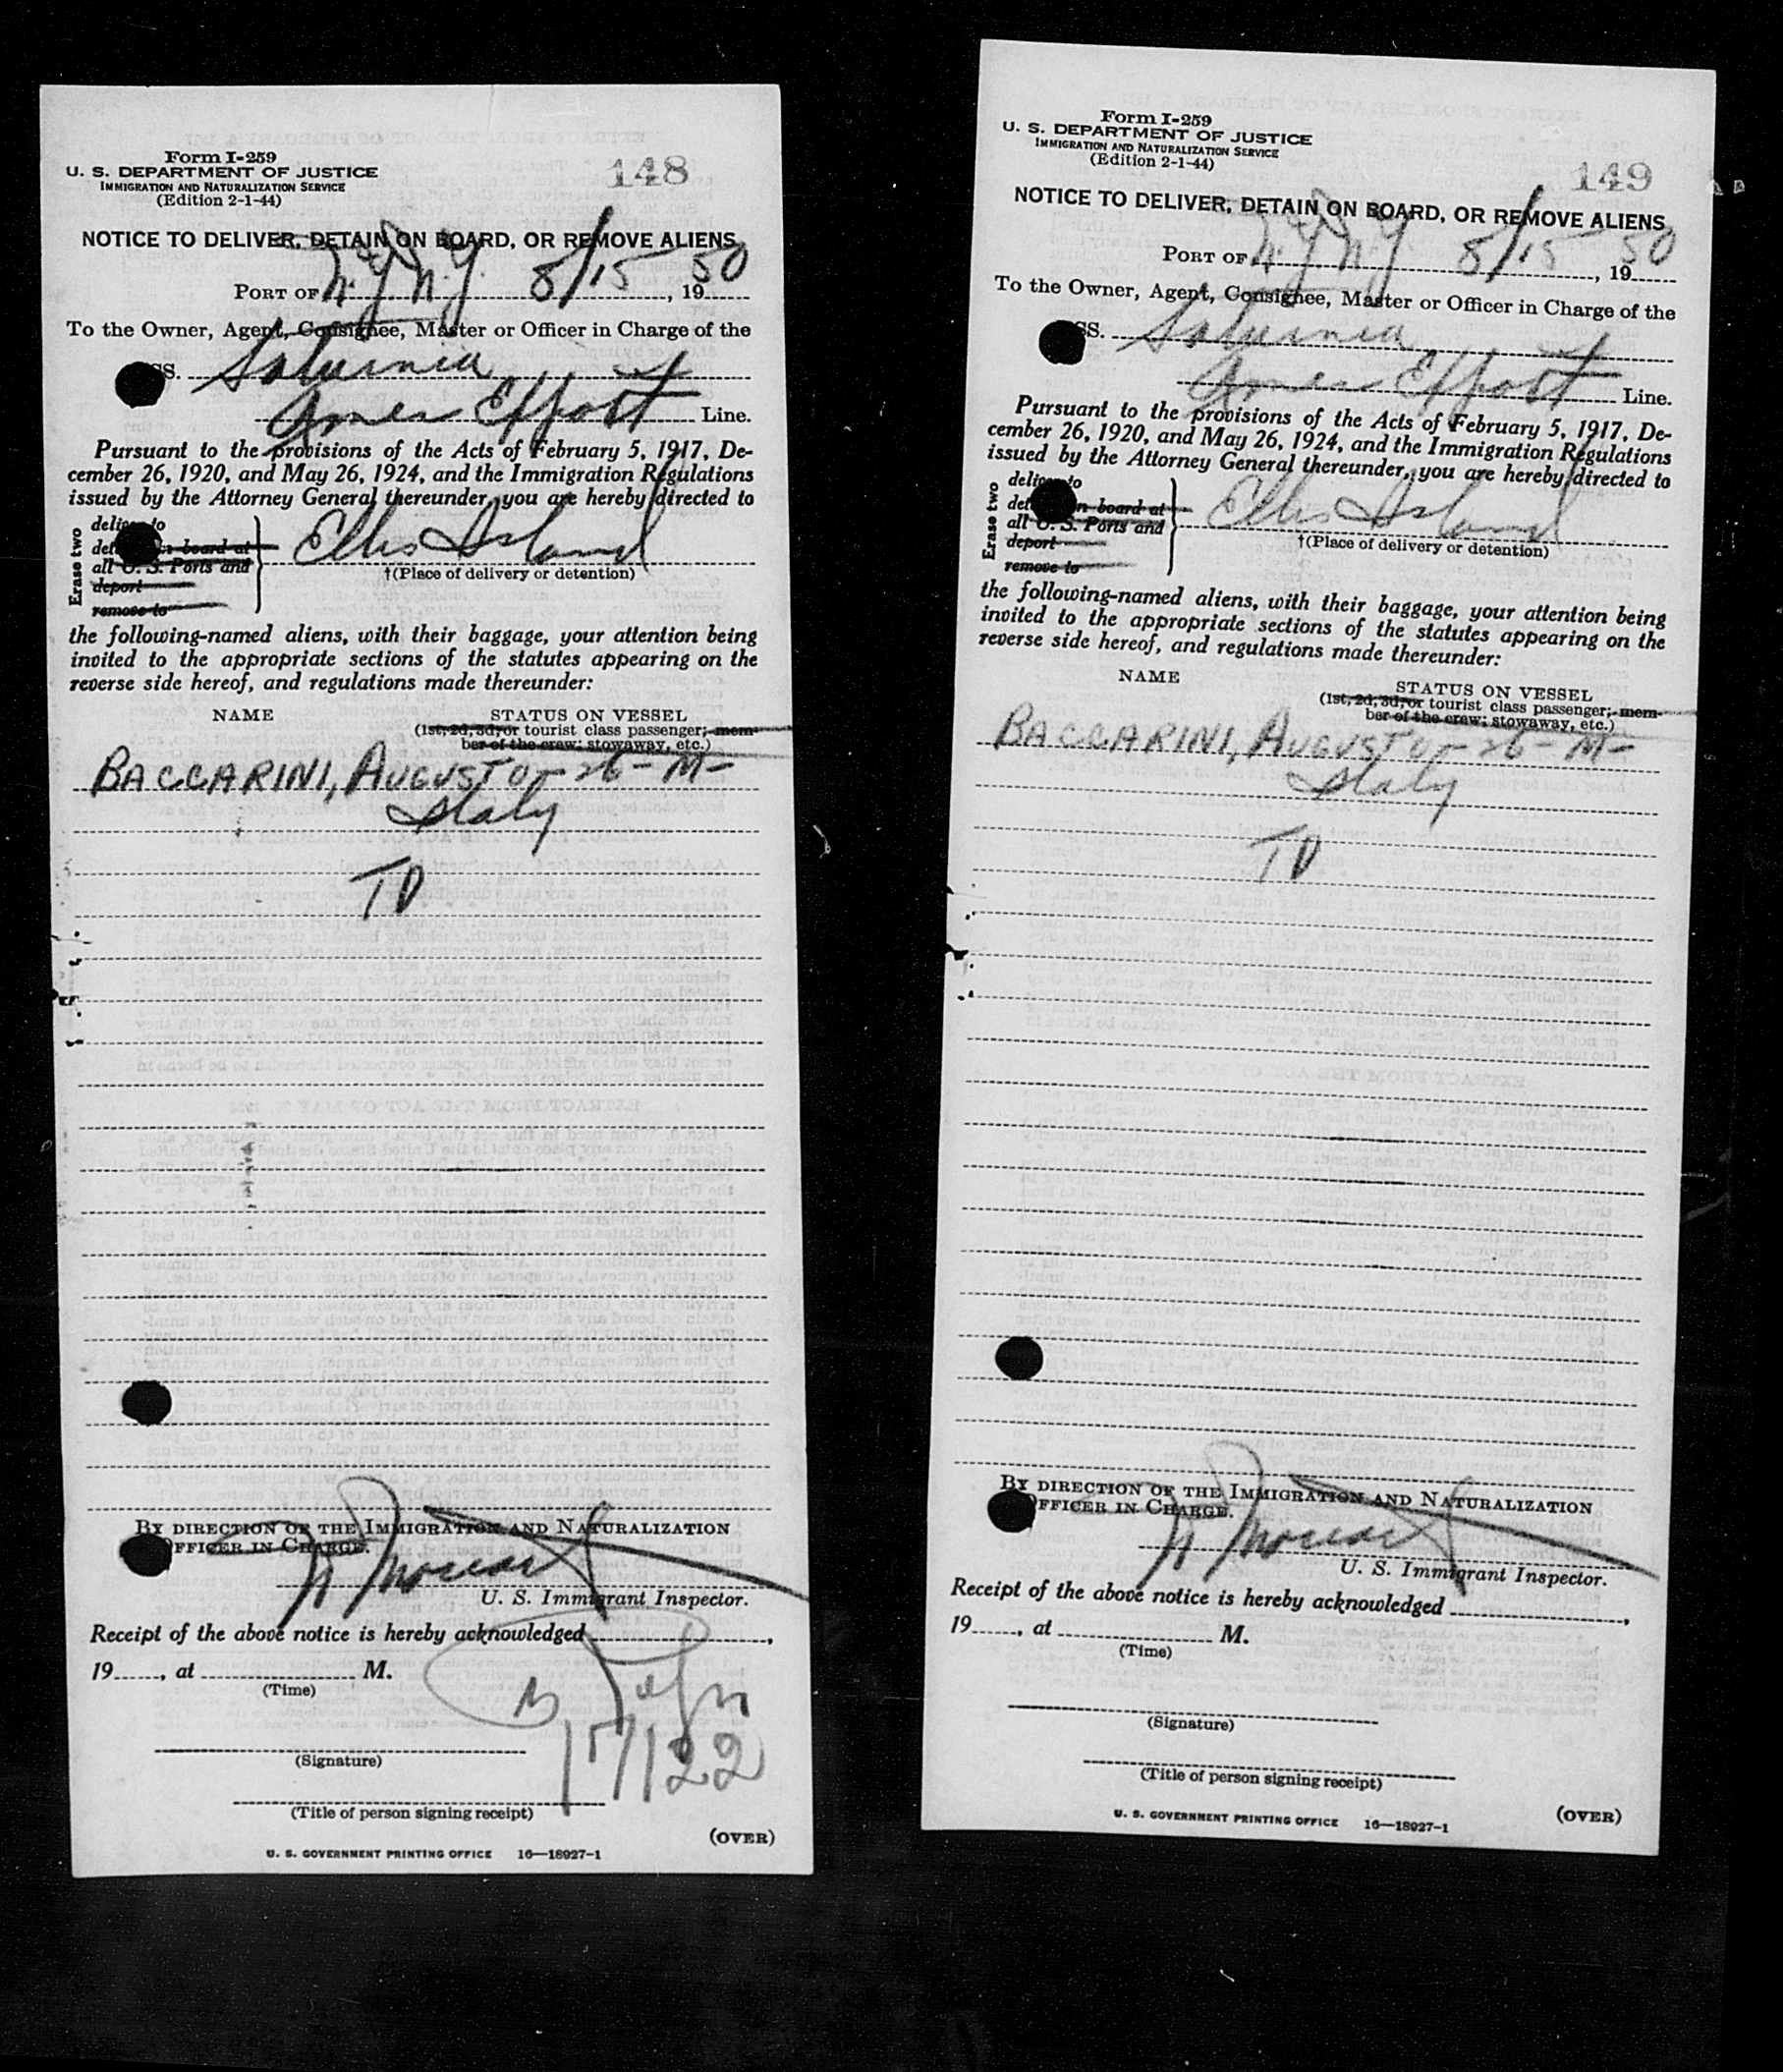 Form I-259
U. S. DEPARTMENT OF JUSTICE
IMMIGRATION AND NATURALIZATION SERVICE
(Edition 2-1-44)
148
NOTICE TO DELIVER, DETAIN ON BOARD, OR REMOVE ALIENS
PORT OF N.Y. N.Y. 8/15, 1950
To the Owner, Agent, Consignee, Master or Officer in Charge of the
SS. Saturnia
Amer Export Line.
Pursuant to the provisions of the Acts of February 5, 1917, De-
cember 26, 1920, and May 26, 1924, and the Immigration Regulations
issued by the Attorney General thereunder, you are hereby directed to
Erase two
deliver to
det on board at
all U. S. Ports and
deport
remove to
Ellis Island
†(Place of delivery or detention)
the following-named aliens, with their baggage, your attention being
invited to the appropriate sections of the statutes appearing on the
reverse side hereof, and regulations made thereunder:
NAME STATUS ON VESSEL
(1st, 2d, 3d, or tourist class passenger; mem-
ber of the crew; stowaway, etc.)
BACCARINI, AUGUSTO - 26 - M -
Italy
TD
BY DIRECTION OF THE IMMIGRATION AND NATURALIZATION
OFFICER IN CHARGE.
U. S. Immigrant Inspector.
Receipt of the above notice is hereby acknowledged ,
19 , at M.
(Time)
(Signature)
(Title of person signing receipt)
(OVER)
U. S. GOVERNMENT PRINTING OFFICE 16—18927-1
Form I-259
U. S. DEPARTMENT OF JUSTICE
IMMIGRATION AND NATURALIZATION SERVICE
(Edition 2-1-44)
149
NOTICE TO DELIVER, DETAIN ON BOARD, OR REMOVE ALIENS
PORT OF N.Y. N.Y. 8/15, 1950
To the Owner, Agent, Consignee, Master or Officer in Charge of the
SS. Saturnia
Amer Export Line.
Pursuant to the provisions of the Acts of February 5, 1917, De-
cember 26, 1920, and May 26, 1924, and the Immigration Regulations
issued by the Attorney General thereunder, you are hereby directed to
Erase two
deliver to
det on board at
all U. S. Ports and
deport
remove to
Ellis Island
†(Place of delivery or detention)
the following-named aliens, with their baggage, your attention being
invited to the appropriate sections of the statutes appearing on the
reverse side hereof, and regulations made thereunder:
NAME STATUS ON VESSEL
(1st, 2d, 3d, or tourist class passenger; mem-
ber of the crew; stowaway, etc.)
BACCARINI, AUGUSTO - 26 - M -
Italy
TD
BY DIRECTION OF THE IMMIGRATION AND NATURALIZATION
OFFICER IN CHARGE.
U. S. Immigrant Inspector.
Receipt of the above notice is hereby acknowledged ,
19 , at M.
(Time)
(Signature)
(Title of person signing receipt)
U. S. GOVERNMENT PRINTING OFFICE 16—18927-1
(OVER)